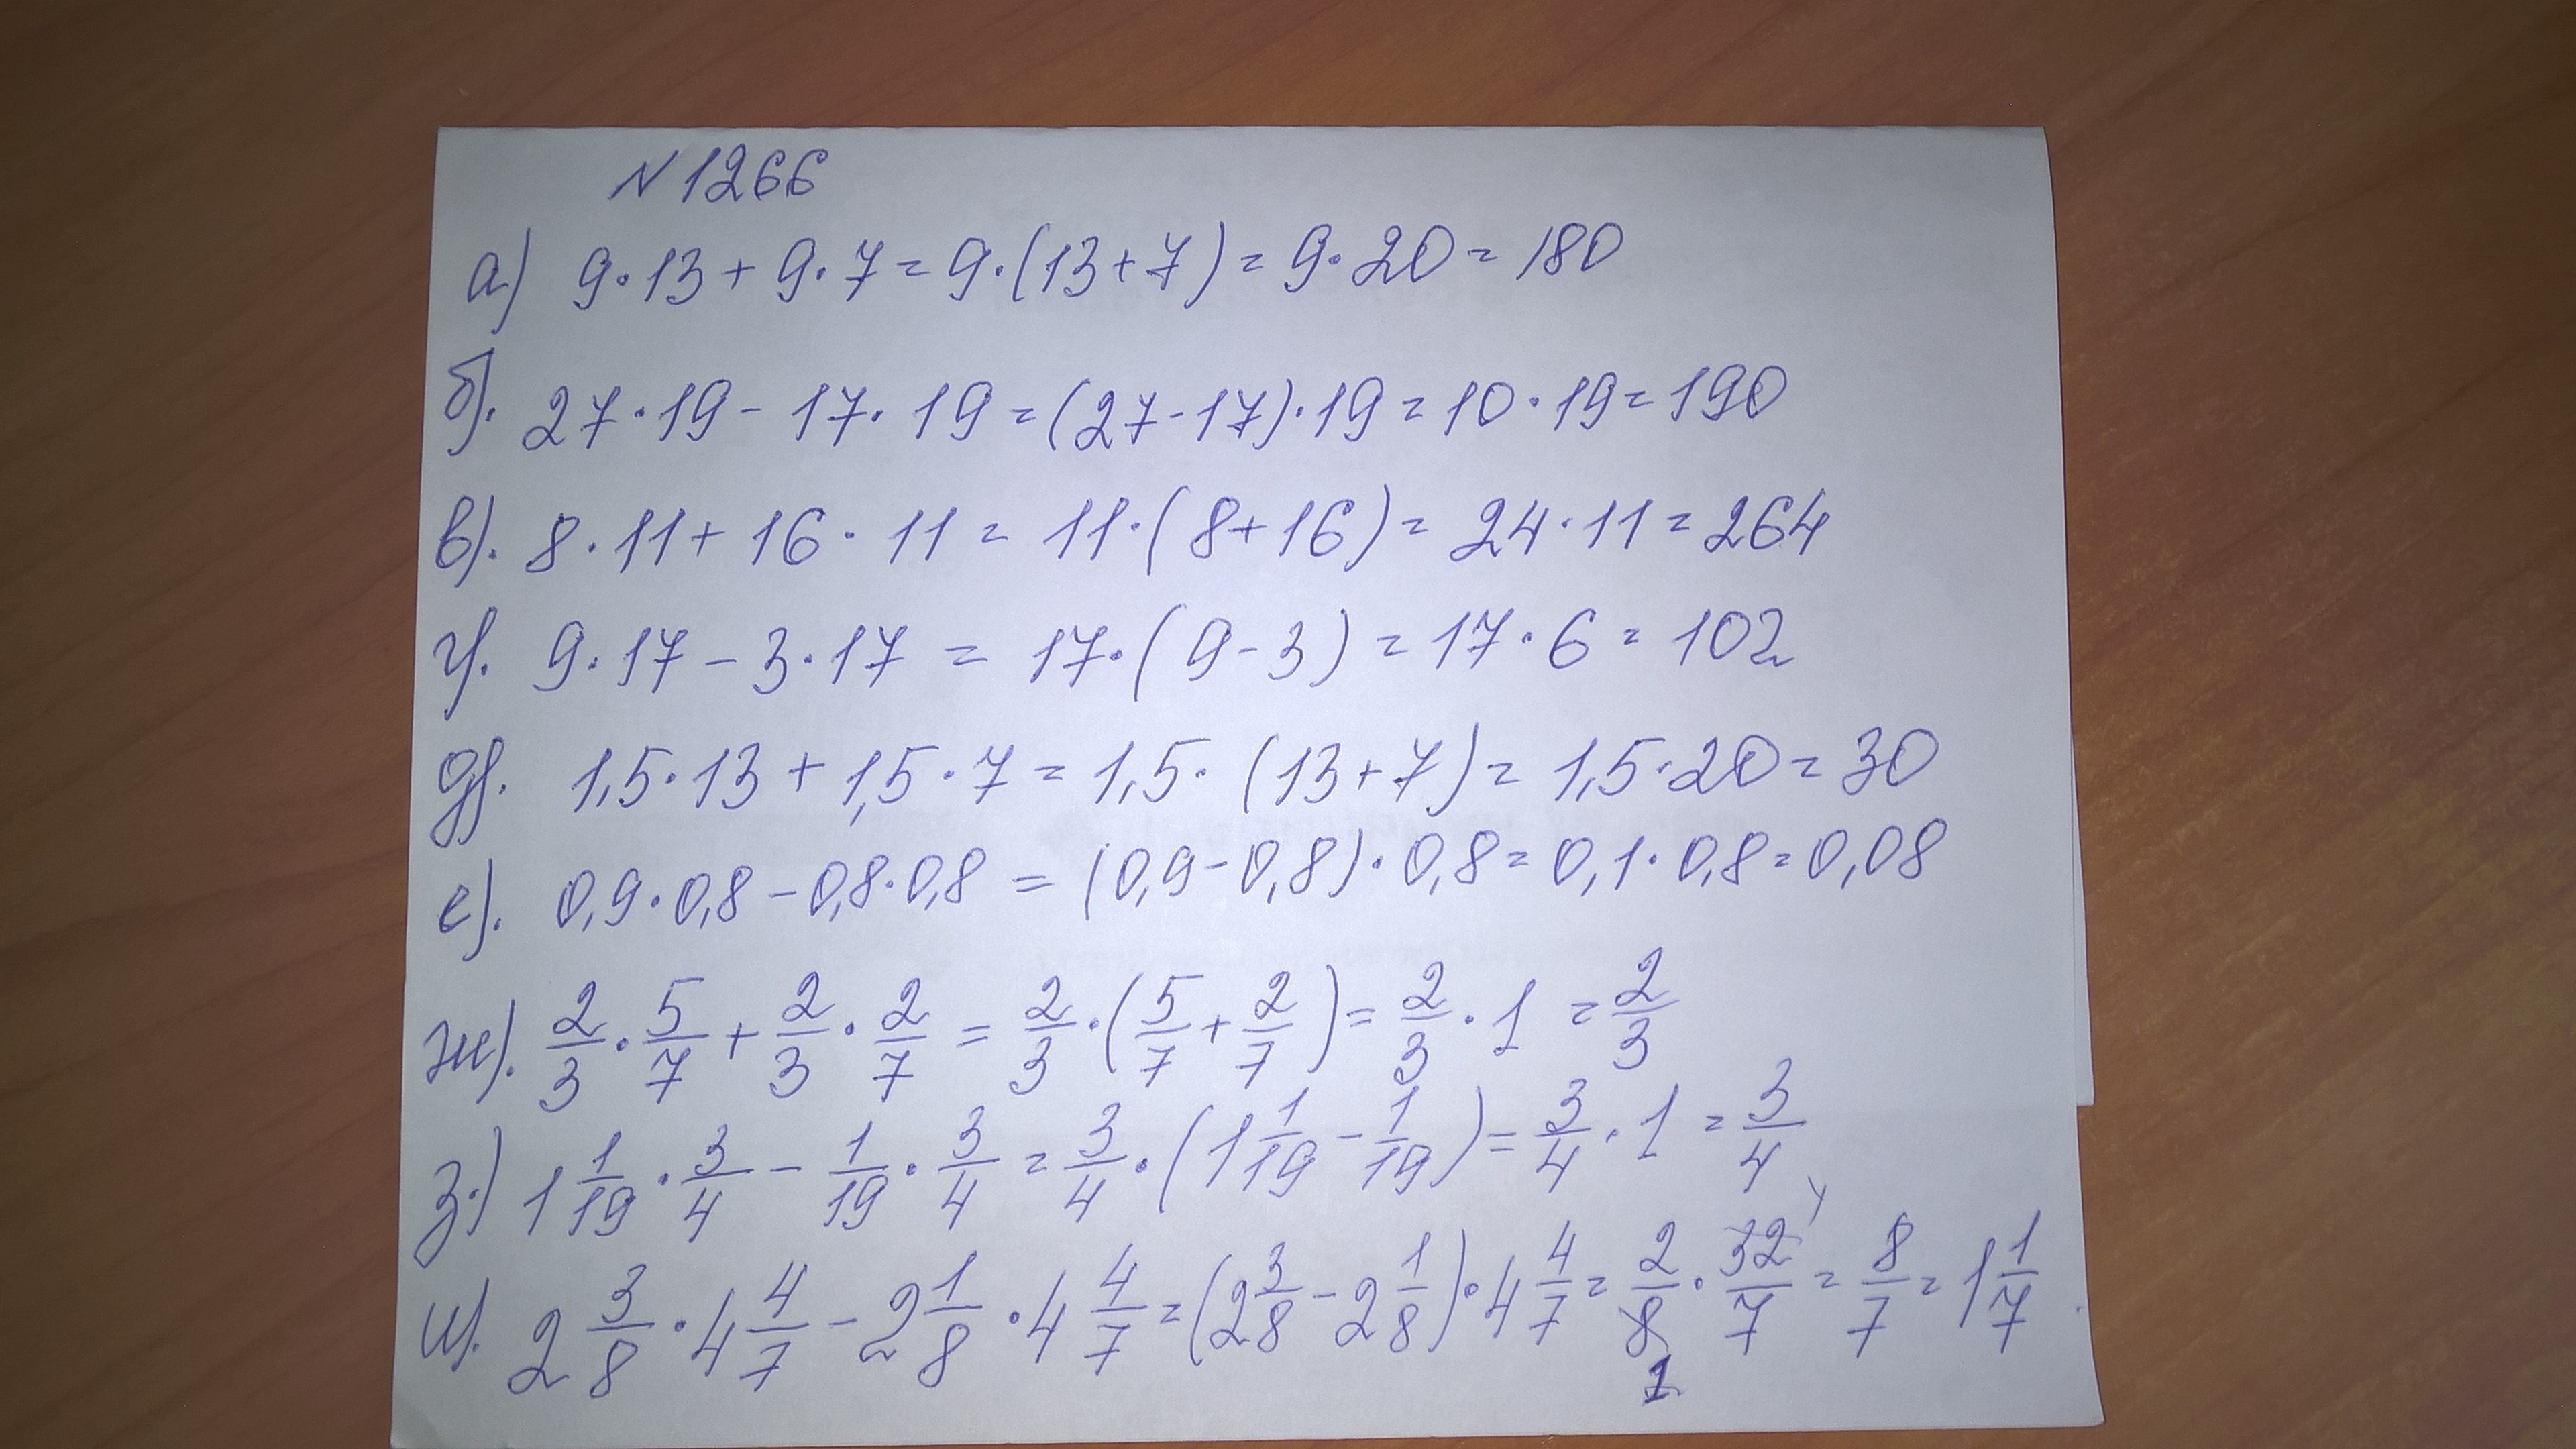 N 1266
а) 9·13 + 9·7 = 9·(13+7) = 9·20 = 180
б). 27·19 - 17·19 = (27-17)·19 = 10·19 = 190
в). 8·11 + 16·11 = 11·(8+16) = 24·11 = 264
г). 9·17 - 3·17 = 17·(9-3) = 17·6 = 102
д). 1,5·13 + 1,5·7 = 1,5·(13+7) = 1,5·20 = 30
е). 0,9·0,8 - 0,8·0,8 = (0,9-0,8)·0,8 = 0,1·0,8 = 0,08
ж). 2/3 · 5/7 + 2/3 · 2/7 = 2/3 · (5/7 + 2/7) = 2/3 · 1 = 2/3
з.) 1 1/19 · 3/4 - 1/19 · 3/4 = 3/4 · (1 1/19 - 1/19) = 3/4 · 1 = 3/4
и). 2 3/8 · 4 4/7 - 2 1/8 · 4 4/7 = (2 3/8 - 2 1/8) · 4 4/7 = 2/8 · 32/7 = 8/7 = 1 1/7
4
1